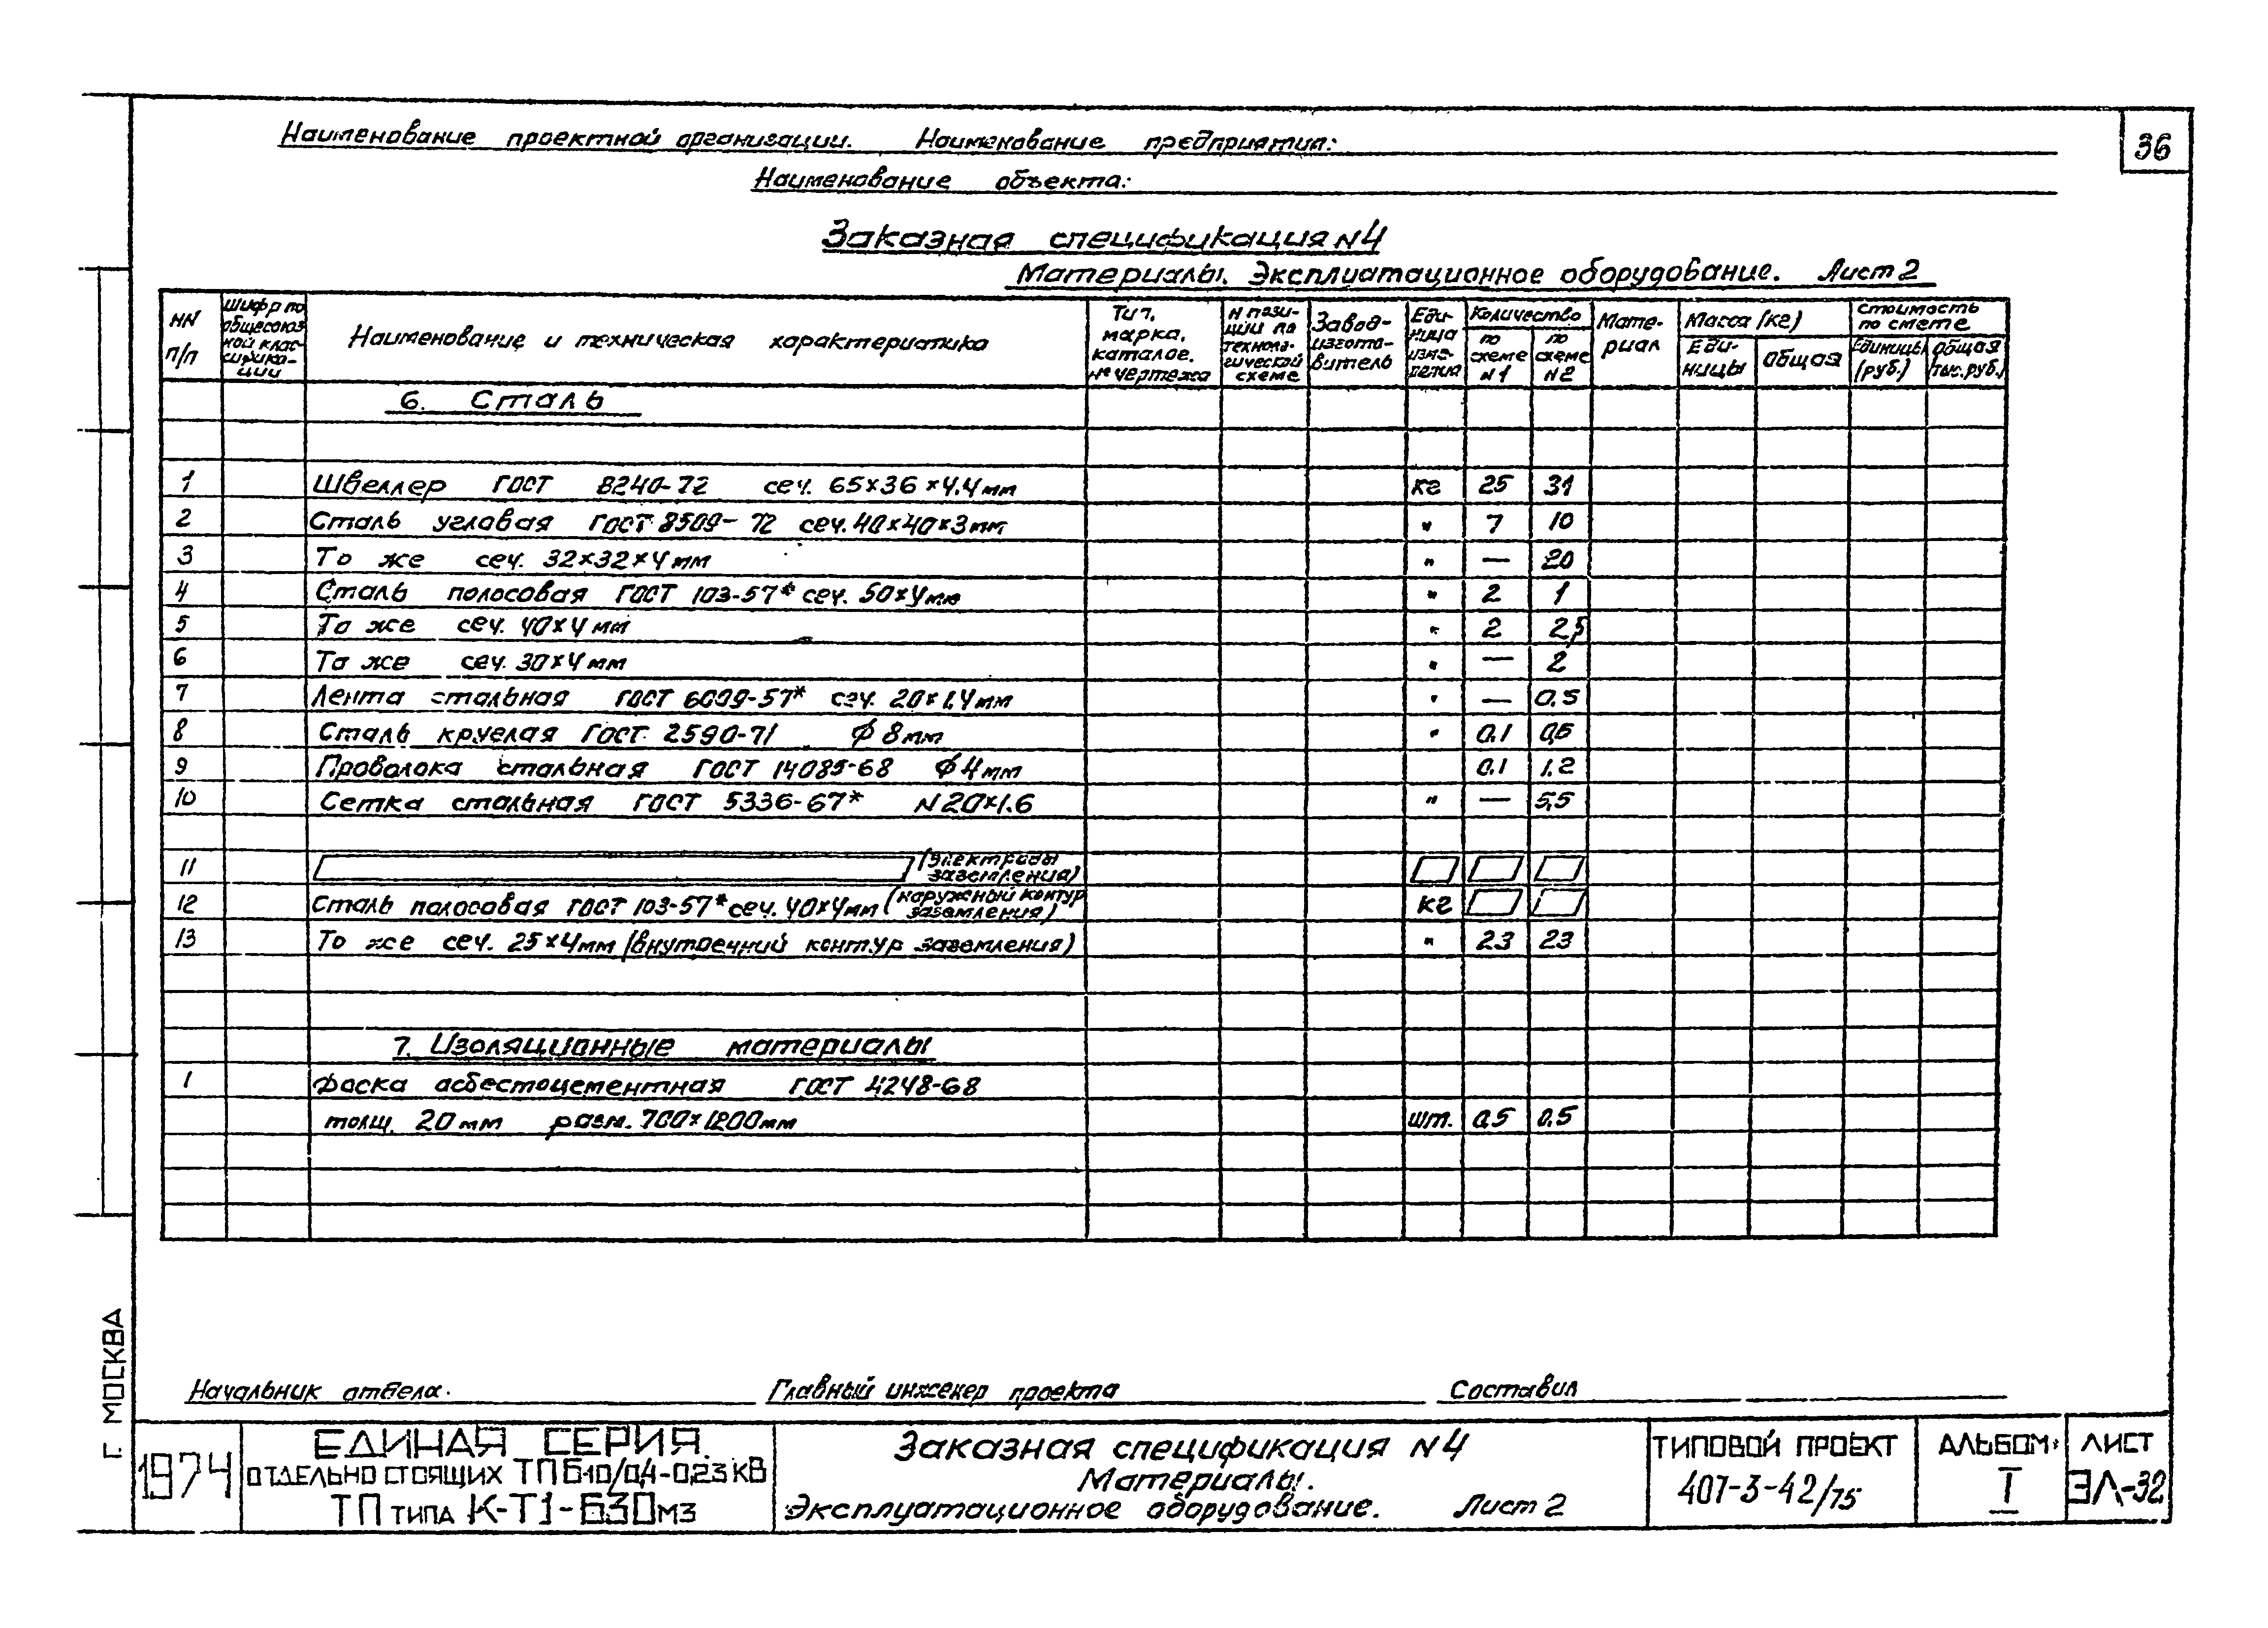 36
Наименование проектной организации. Наименование предприятия:
Наименование объекта:
Заказная спецификация N4
Материалы. Эксплуатационное оборудование. Лист 2
NN п/п
Шифр по общесоюзной классификации
Наименование и техническая характеристика
Тип, марка, каталог. № чертежа
N позиции по технологической схеме
Завод-изготовитель
Единица измерения
Количество
по схеме N1
по схеме N2
Материал
Масса (кг)
Единицы
Общая
Стоимость по смете
Единицы (руб.)
Общая (тыс.руб.)
6. Сталь
1 Швеллер ГОСТ 8240-72 сеч. 65×36×4.4мм кг 25 31
2 Сталь угловая ГОСТ 8509-72 сеч. 40×40×3мм " 7 10
3 То же сеч. 32×32×4мм " — 20
4 Сталь полосовая ГОСТ 103-57* сеч. 50×4мм " 2 1
5 То же сеч. 40×4мм " 2 2,5
6 То же сеч. 30×4мм " — 2
7 Лента стальная ГОСТ 6009-57* сеч. 20×1,4мм " — 0,5
8 Сталь круглая ГОСТ 2590-71 ф 8мм " 0,1 0,6
9 Проволока стальная ГОСТ 14085-68 ф 4мм 0,1 1,2
10 Сетка стальная ГОСТ 5336-67* N 20×1.6 " — 5,5
11 (Электроды заземления)
12 Сталь полосовая ГОСТ 103-57* сеч. 40×4мм (наружный контур заземления) кг
13 То же сеч. 25×4мм (внутренний контур заземления) " 23 23
7. Изоляционные материалы
1 Доска асбестоцементная ГОСТ 4248-68
толщ. 20мм разм. 700×1200мм шт. 0,5 0,5
Начальник отдела. Главный инженер проекта Составил
Г. МОСКВА
1974
ЕДИНАЯ СЕРИЯ
ОТДЕЛЬНО СТОЯЩИХ ТП 6-10/0,4-0,23 КВ
ТП ТИПА К-Т1-630 М3
Заказная спецификация N4
Материалы.
Эксплуатационное оборудование. Лист 2
ТИПОВОЙ ПРОЕКТ
407-3-42/75
АЛЬБОМ:
I
ЛИСТ
ЭЛ-32